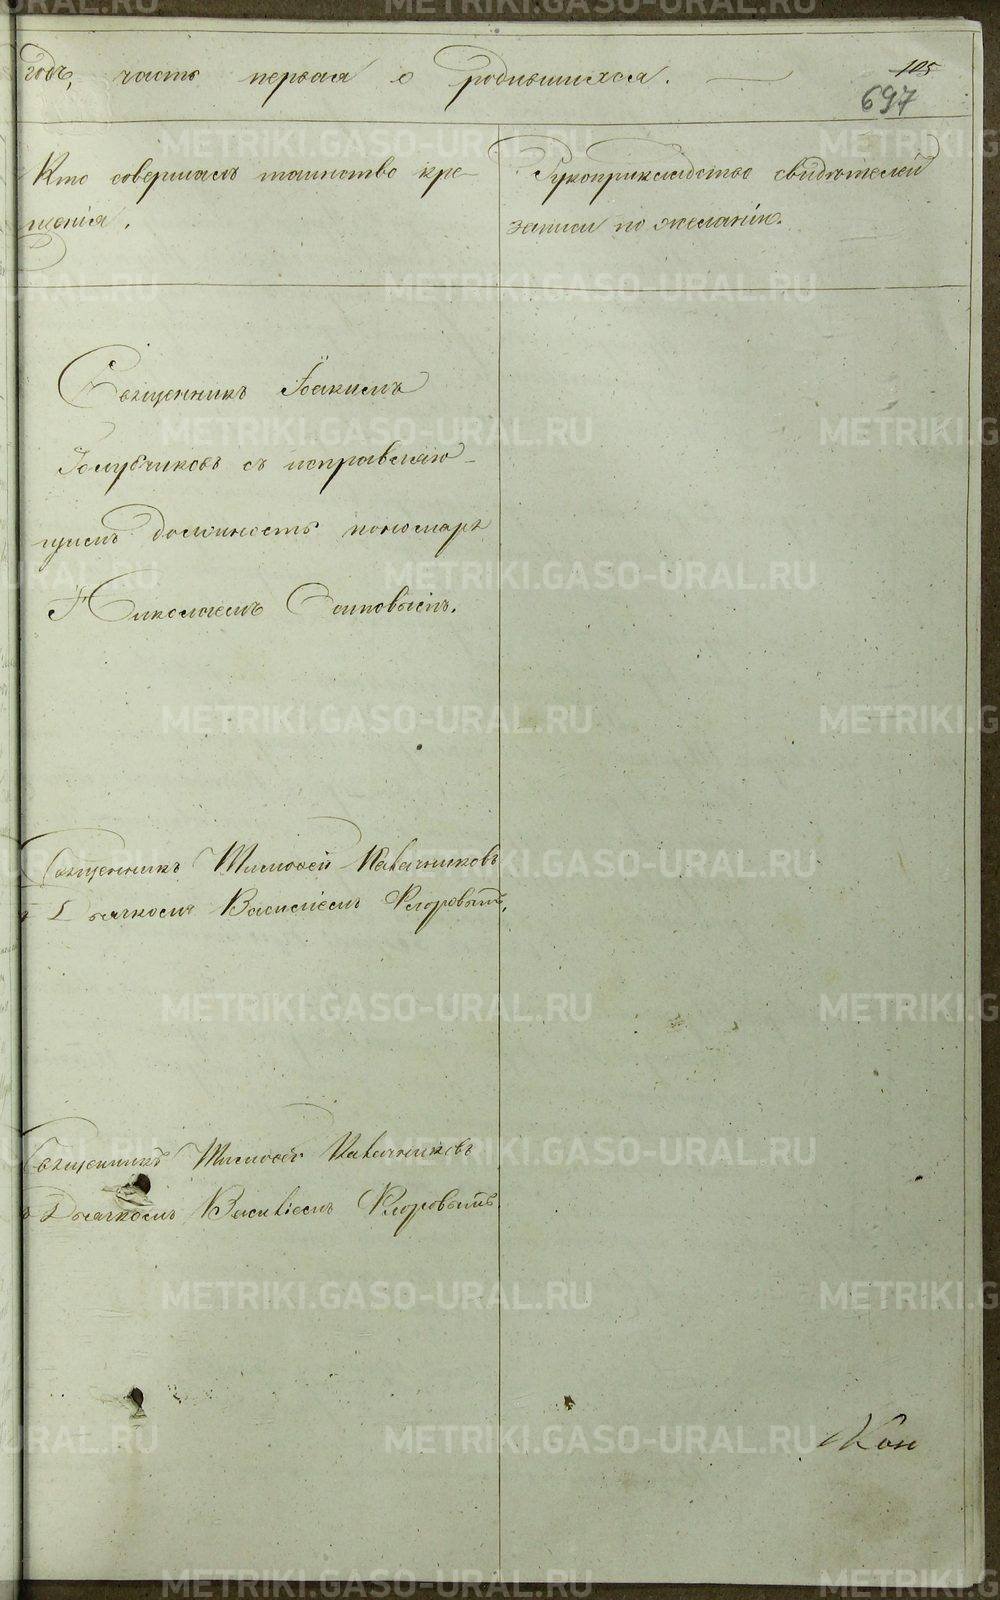 годъ, часть первая о родившихся.
105
697
Кто совершалъ таинство кре-
щенія.
Рукоприкладство свидѣтелей
записи по желанію.
Священникъ Іоакимъ
Голубчиковъ съ исправляю-
щимъ должность пономаря
Николаемъ Поповымъ.
Священникъ Тимофей Калачниковъ
Дьячкомъ Василіемъ Флоровымъ,
Священникъ Тимофей Калачниковъ
Дьячкомъ Василіемъ Флоровымъ.
METRIKI.GASO-URAL.RU